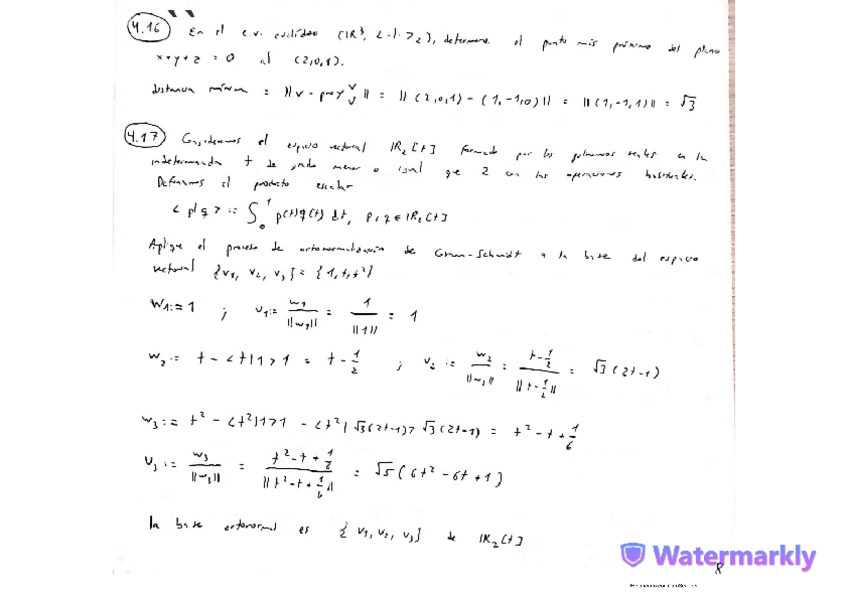 4.16 En el e.v. euclídeo (IR³, <·|·>₂), determine el punto más próximo del plano
x+y+z = 0 al (2,0,1).
distancia mínima = ||v - proy_U^v|| = ||(2,0,1) - (1,-1,0)|| = ||(1,1,1)|| = √3
4.17 Consideremos el espacio vectorial IR₂[t] formado por los polinomios reales en la
indeterminada t de grado menor o igual que 2 con las operaciones habituales.
Definamos el producto escalar
<p|q> := ∫₀¹ p(t)q(t) dt, p,q ∈ IR₂[t]
Aplique el proceso de ortonormalización de Gram-Schmidt a la base del espacio
vectorial {v₁, v₂, v₃} = {1, t, t²}
w₁ := 1 ; v₁ := w₁/||w₁|| = 1/||1|| = 1
w₂ := t - <t|1>1 = t - 1/2 ; v₂ := w₂/||w₂|| = (t - 1/2)/||t - 1/2|| = √3(2t-1)
w₃ := t² - <t²|1>1 - <t²|√3(2t-1)>√3(2t-1) = t² - t + 1/6
v₃ := w₃/||w₃|| = (t² - t + 1/6)/||t² - t + 1/6|| = √5(6t² - 6t + 1)
la base ortonormal es {v₁, v₂, v₃} de IR₂[t]
Watermarkly
8